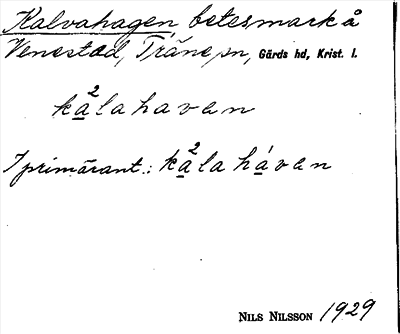 Kalvahagen betesmark å
Venestad, Träne sn, Gärds hd, Krist. l.
ka²lahavan
I primärant.: ka²lahávan
NILS NILSSON 1929